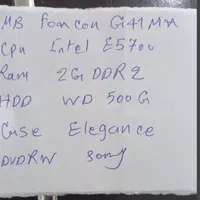 MB Foxcon G41MX
Cpu Intel E5700
Ram 2G DDR2
HDD WD 500G
Case Elegance
DVDRW Sony